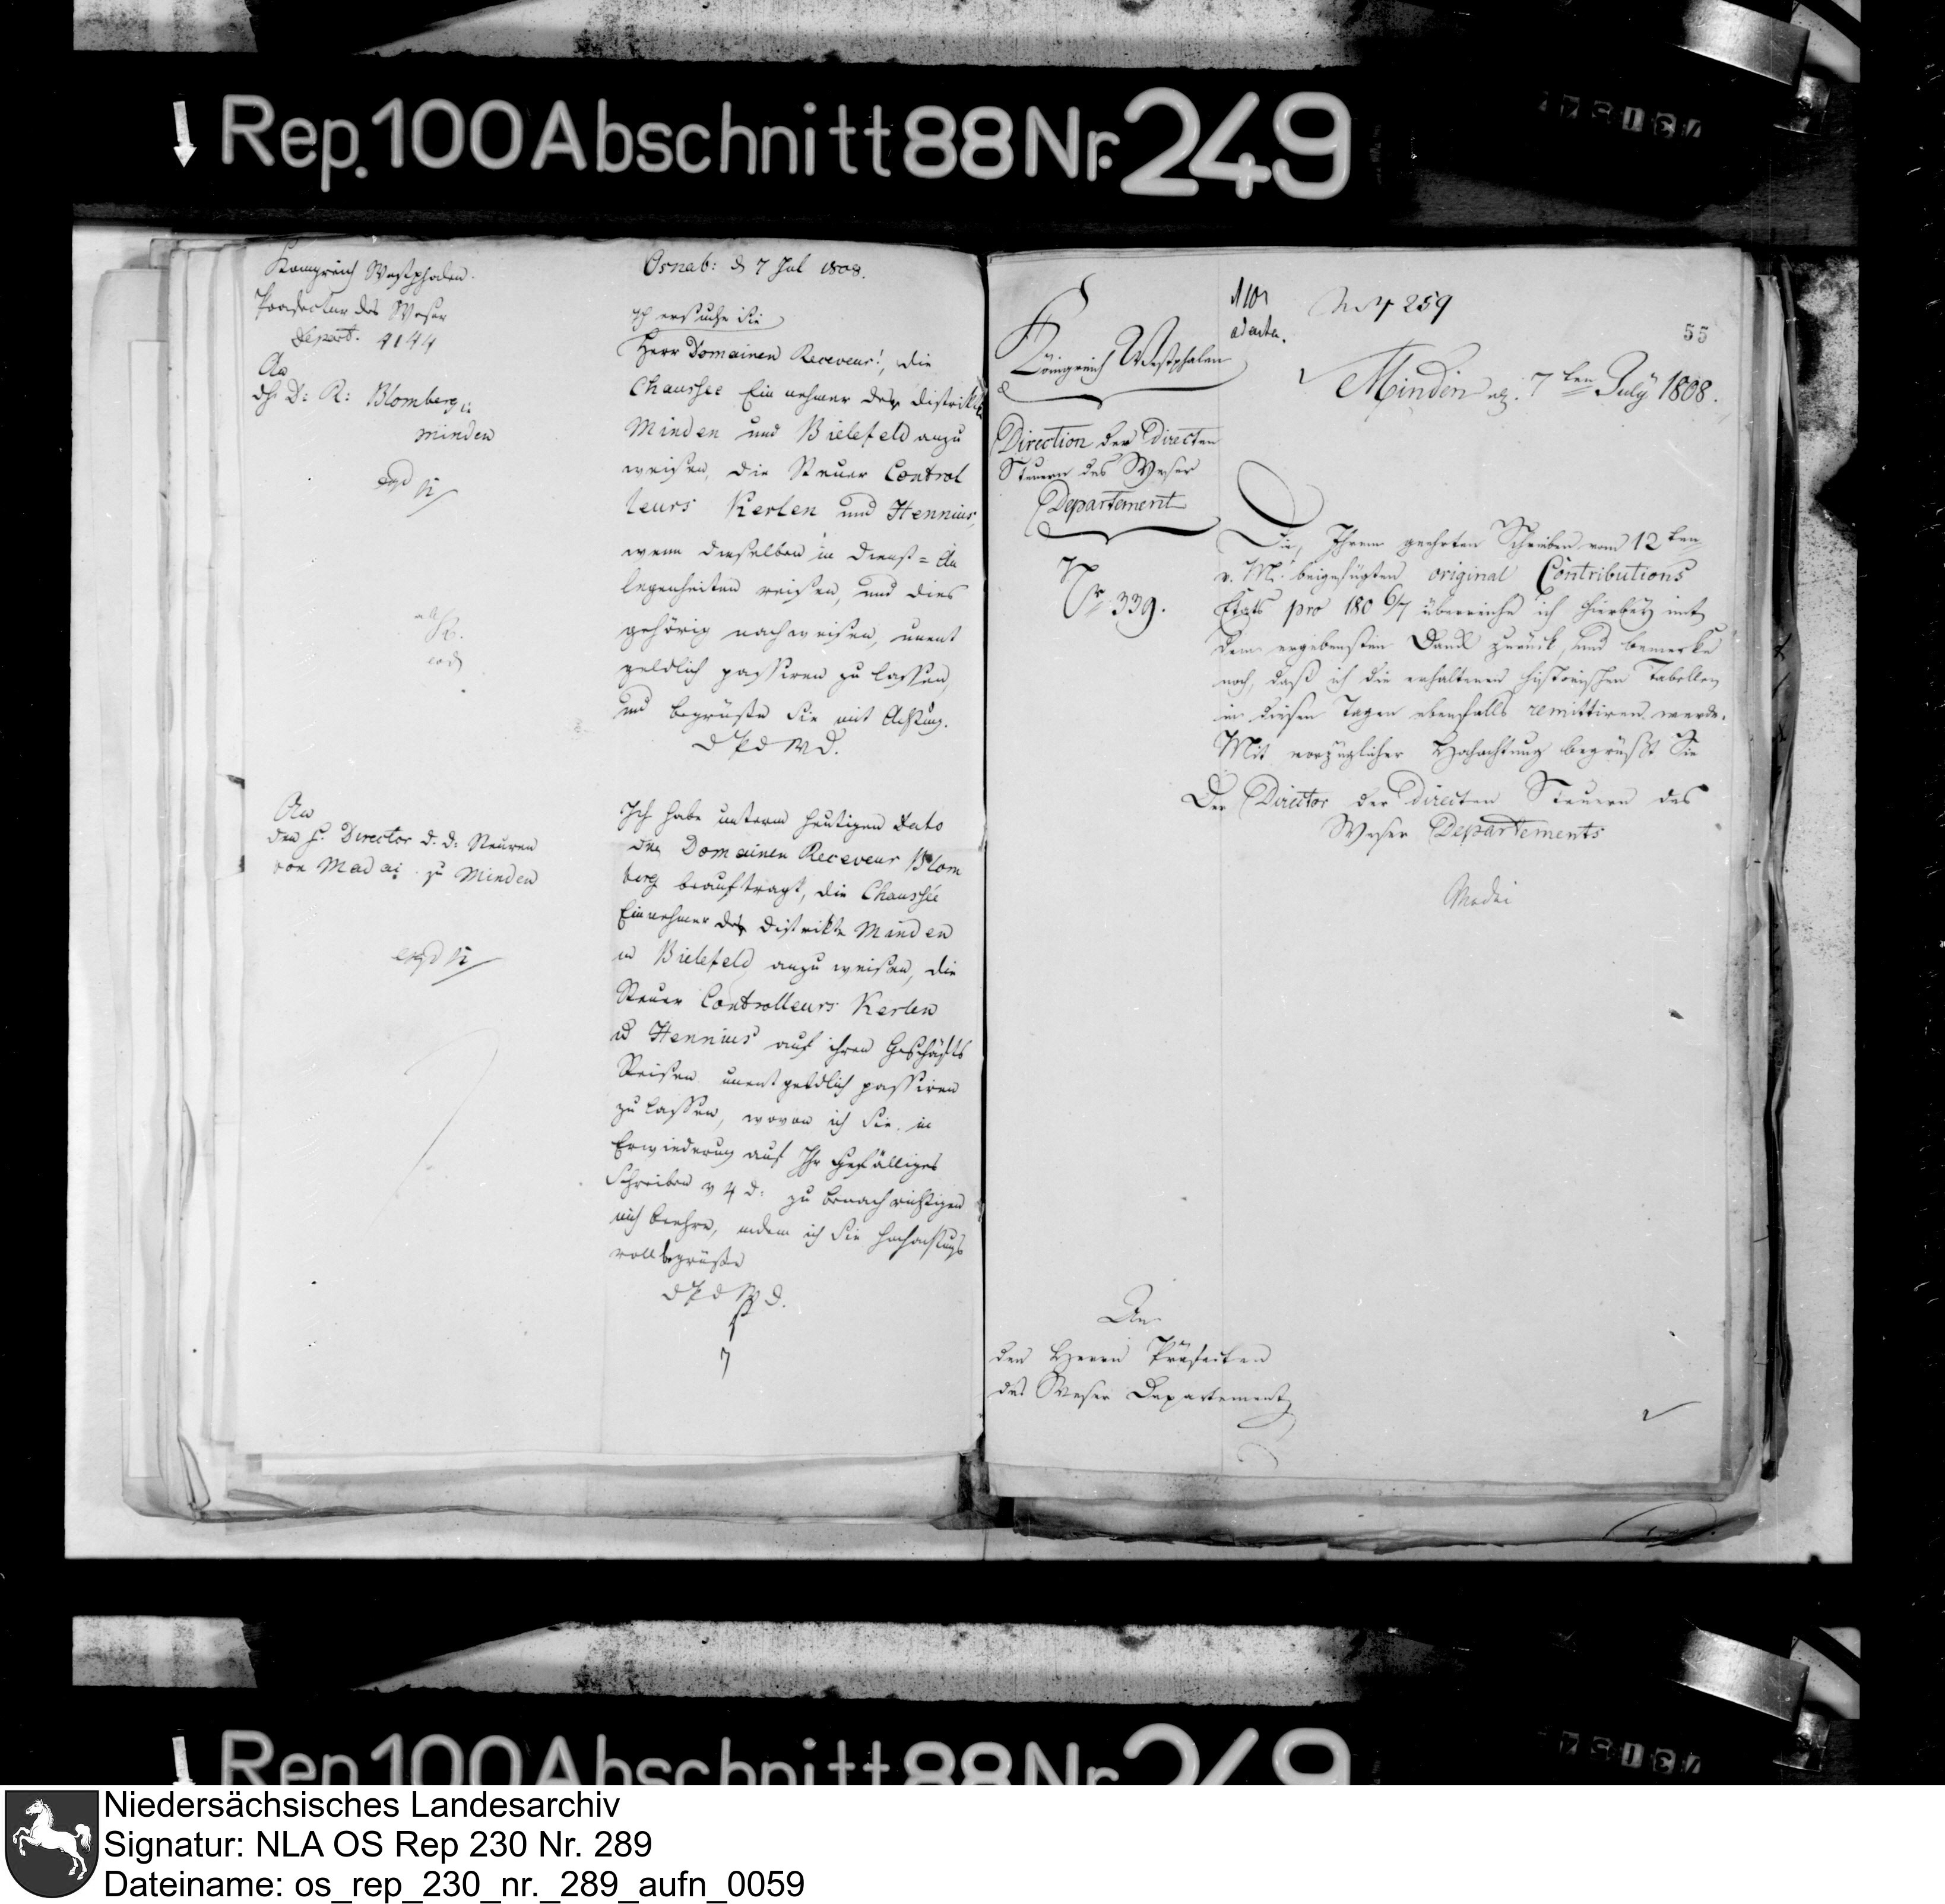 Rep. 100 Abschnitt 88 Nr. 249
Königreich Westphalen.
Praefectur des Weser
Depart. 4144
An
dh. D: R: Blomberg in
Minden
expd
Osnab: d 7 Jul 1808.
Ich ersuche Sie
Herr Domainen Receveur!, die
Chaussee Einnehmer der Distrikte
Minden und Bielefeld anzu
weisen, die Steuer Control
leurs Kerlen und Hennius,
wenn dieselben in Dienst=An
legenheiten reisen, und dies
gehörig nachweisen, unent
geldlich passiren zu lassen,
und begrüße Sie mit Achtung.
d P d W D.
An
den H. Director d. d: Steuren
von Madai zu Minden
expd
Ich habe unterm heutigen Dato
den Domainen Receveur Blom
berg beauftragt, die Chaussée
Einnehmer der Distrikte Minden
u Bielefeld anzuweisen, die
Steuer Controlleurs Kerlen
u Hennius auf ihren Geschäfts
Reisen unentgeldlich passiren
zu lassen, wovon ich Sie in
Erwiederung auf Ihr gefälliges
Schreiben v 4 d: zu benachrichtigen
mich beehre, indem ich Sie hochachtungs
voll begrüße
d P d W D.
7
259
ad acta.
55
Königreich Westphalen
Minden, 7ten July 1808.
Direction der directen
Steuern des Weser
Departement
Nr. 339.
Die, Ihrem geehrten Schreiben vom 12ten
v. M. beigefügten original Contributions
Etats pro 180 6/7 überreiche ich hierbey mit
dem ergebensten Dank zurück, und bemerke
noch, daß ich die erhaltenen historischen Tabellen
in diesen Tagen ebenfalls remittiren werde.
Mit vorzüglicher Hochachtung begrüßt Sie
Der Director der directen Steuern des
Weser Departements
Madai
An
den Herrn Präfecten
des Weser Departements
Rep. 100 Abschnitt 88 Nr. 249
Niedersächsisches Landesarchiv
Signatur: NLA OS Rep 230 Nr. 289
Dateiname: os_rep_230_nr._289_aufn_0059